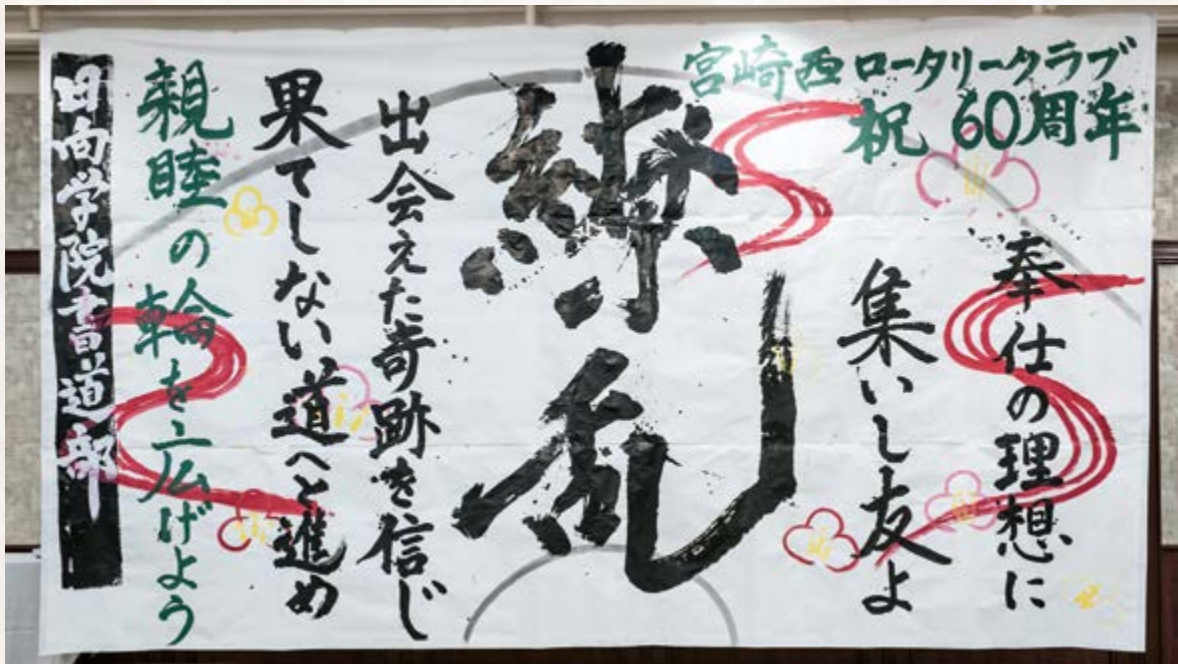 宮崎西ロータリークラブ
祝 60周年
奉仕の理想に
集いし友よ
出会えた奇跡を信じ
果てしない道へと進め
親睦の輪を広げよう
日向学院書道部